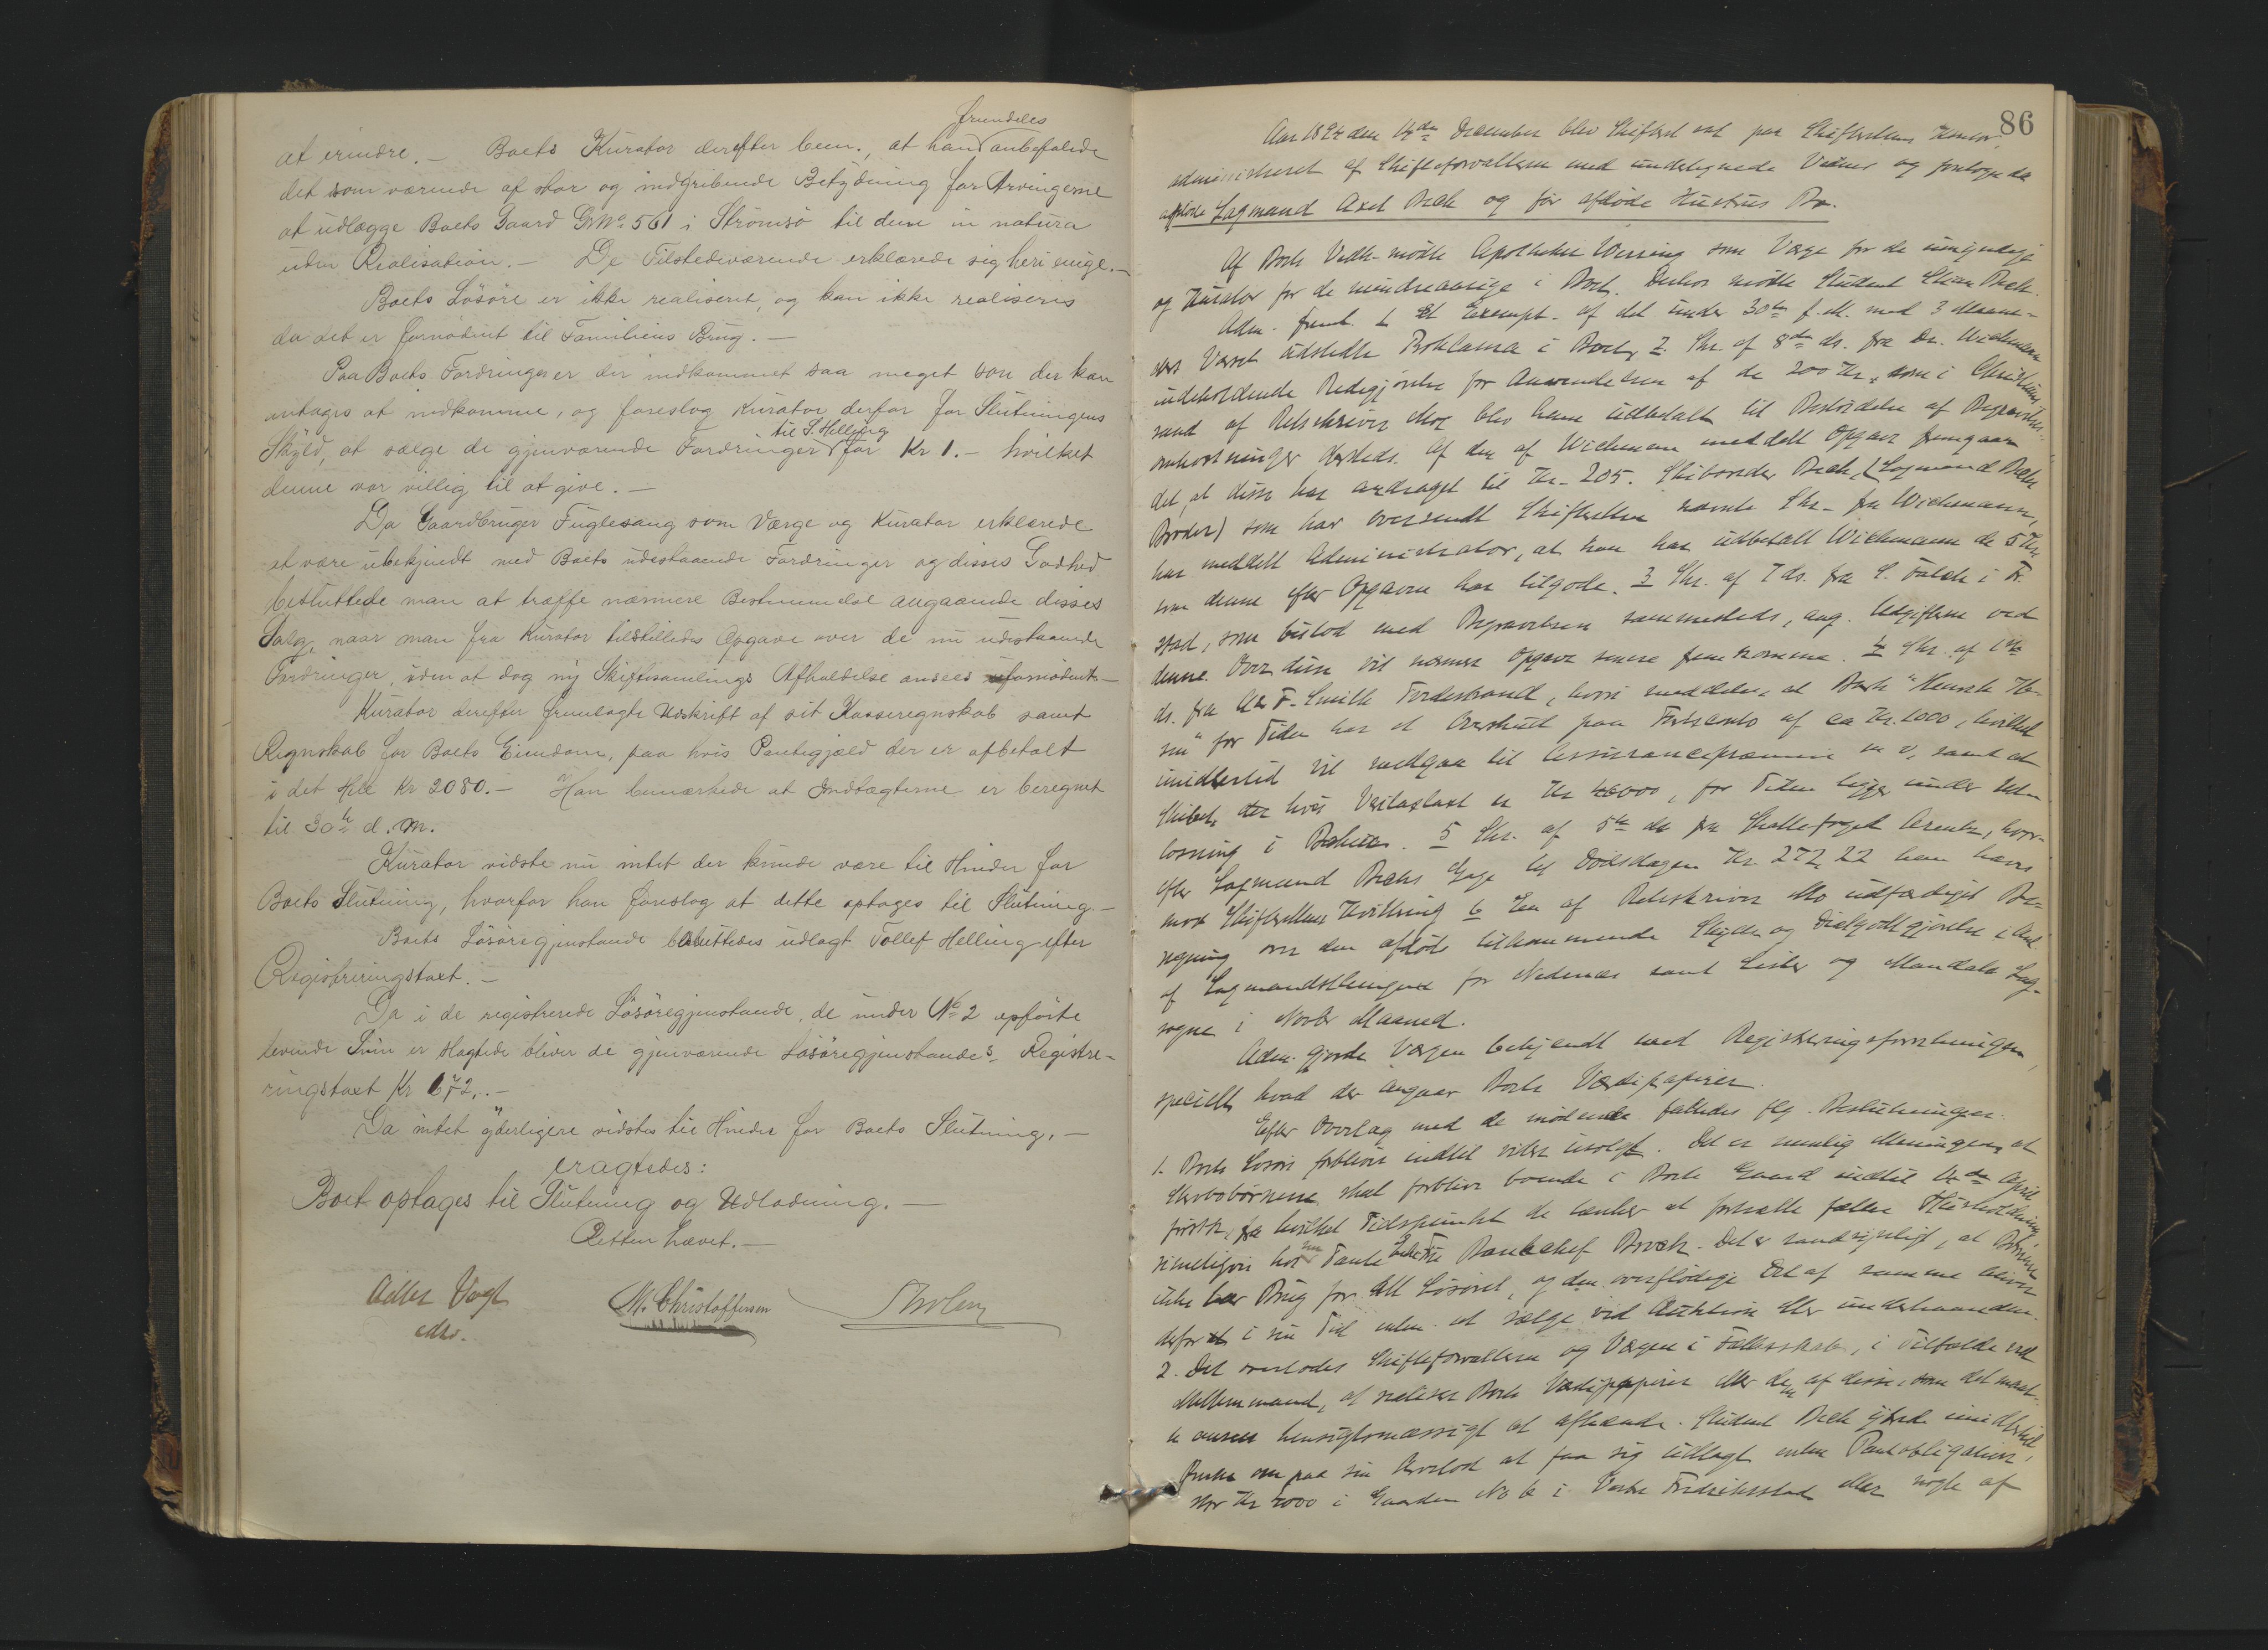 fremdeles
at erindre. – Boets Kurator derefter bem., at han anbefalede
det som værende af stor og indgribende Betydning for Arvingerne
at udlægge Boets Gaard GrNo. 561 i Strömsö til dem in natura
uden Realisation. – De Tilstedeværende erklærede sig heri enige. –
Boets Lösöre er ikke realiseret, og kan ikke realiseres
da det er fornödent til Familiens Brug. –
Paa Boets Fordringer er der indkommet saa meget som der kan
antages at indkomme, og foreslog Kurator derfor for Slutningens
til T. Helling
Skyld, at sælge de gjenværende Fordringer for Kr 1. – hvilket
denne var villig til at give. –
Da Gaardbruger Fuglesang som Værge og Kurator erklærede
at være ubekjendt med Boets udestaaende Fordringer og disses Godhed
besluttede man at træffe nærmere Bestemmelse angaaende disses
Salg, naar man fra Kurator tilstilledes Opgave over de nu udestaaende
Fordringer, uden at dog ny Skiftesamlings Afholdelse ansees ufornödent –
Kurator derefter fremlagde Udskrift af sit Kasseregnskab samt
Regnskab for Boets Eiendom, paa hvis Pantegjæld der er afbetalt
i det Hele Kr 2080. – Han bemærkede at Indtægterne er beregnet
til 30te d. M.
Kurator vidste nu intet der kunde være til Hinder for
Boets Slutning, hvorfor han foreslog at dette optages til Slutning. –
Boets Lösöregjenstande besluttedes udlagt Tollef Helling efter
Registreringstaxt. –
Da i de registrerede Lösöregjenstande, de under No 2 opförte
levende Sviin er slagtede bliver de gjenværende Lösöregjenstandes Registre-
ringstaxt Kr 672,. –
Da intet yderligere vidstes til Hinder for Boets Slutning, –
eragtedes:
Boet optages til Slutning og Udlodning. –
Retten hævet. –
Vogt
M. Christoffersen
86
Aar 1894 den 14de December blev Skifteret sat paa Skifterettens Kontor,
administreret af Skifteforvalteren med undertegnede Vidner og foretoges da
afdøde Lagmand Axel Bech og før afdøde Hustrus Bo.
Af Boets Vedk. mödte Apotheker Werring som Værge for de umyndige
og Kurator for de mindreaarige i Boet. Derhos mödte Student Bech.
Adm. freml. 1 Et Exempl. af det under 30te f. M. med 3 Maane-
ders Varsel udstedte Proklama i Boet, 2 Skr. af 8de ds. fra Dr. Wichmann
indeholdende Redegjörelse for Anvendelsen af de 200 Kr., som i Christian-
sand af Retsskriver Mo blev ham udbetalt til Bestridelse af Begravelses-
omkostninger dersteds. Af den af Wichmann meddelt Opgave fremgaar
det, at disse har andraget til Kr. 205. Skibsreder Bech, (Lagmand Bechs
Broder) som har oversendt Skifteretten nævnte Skr. fra Wichmann,
har meddelt Administrator, at han har udbetalt Wichmann de 5 Kr.
som denne efter Opgaven har tilgode. 3 Skr. af 7 ds. fra C. Falch i Fr.
stad, som bistod med Begravelsen sammesteds, ang. Udgifterne ved
denne. Over disse vil nærmere Opgave senere fremkomme. 4 Skr. af
ds. fra F. Smith Tvedestrand, hvori meddeles, at
for Tiden har et Overskud paa af ca Kr. 1000, hvilket
imidlertid vil medgaa til Assurancepræmie m v, samt at
Skibet, hvis er Kr, for Tiden ligger under Ud-
losning i. 5 Skr. af 5te ds fra Skattefoged, hvor-
efter Lagmand Bechs Gage til Dödsdagen Kr. 272,22 kan hæves
mod Skifterettens Kvittering 6 En af Retsskriver Mo udfærdiget Be-
regning over den afdøde tilkommende Skyds og Diætgodtgjörelse i Anl.
af Lagmandsthingene for Nedenæs samt Lister og Mandals Lag-
sogne i Novbr Maaned.
Adm. gjorde Værgen bekjendt med Registreringsforretningen,
specielt hvad der angaar Boets Værdipapirer.
Efter Overlæg med de mödende fattedes flg. Beslutninger:
1. Boets Lösöre forbliver indtil videre usolgt. Det er nemlig Meningen, at
Stervbobörnene skal forblive boende i Boets Gaard indtil 14de April
förstk., fra hvilket Tidspunkt de tænker at fortsætte fælles Husholdning
rimeligvis hos Tante Bankchef Broch. Det er sandsynligt, at Börnene
ikke har Brug for alt Lösöret, og den overflödige Del af samme bliver
derfor i sin Tid enten at sælge ved Auktion eller underhaanden.
2. Det overlodes Skifteforvalteren og Værgen i Fællesskab, i Tilfælde ved
Mellemmand, at realisere Boets Værdipapirer eller de af disse, som det maat-
te ansees hensigtsmæssigt at afhænde. Student Bech gjorde imidlertid
Önske om paa sin Arvelod at faa sig udlagt enten Pantobligation,
stor Kr 4000 i Gaarden No 6 i Vestre Fredriksstad eller nogle af